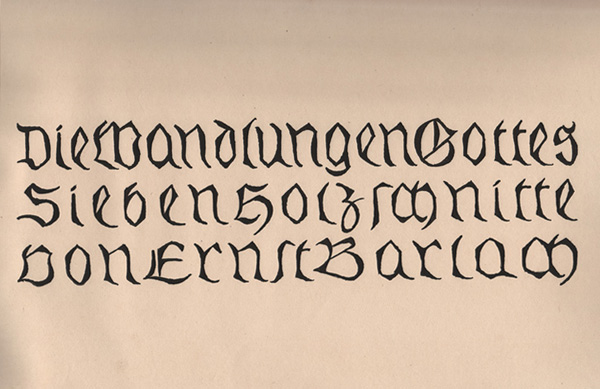 Die Wandlungen Gottes
Sieben Holzſchnitte
von Ernſt Barlach